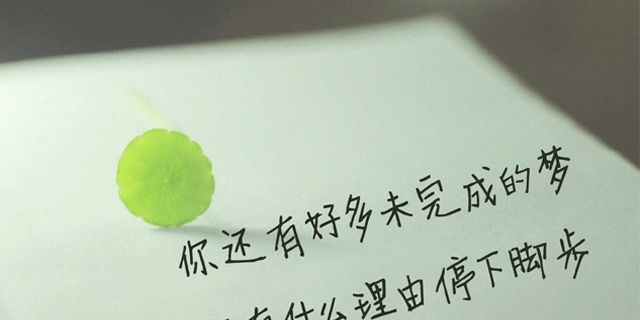 你还有好多未完成的梦
有什么理由停下脚步